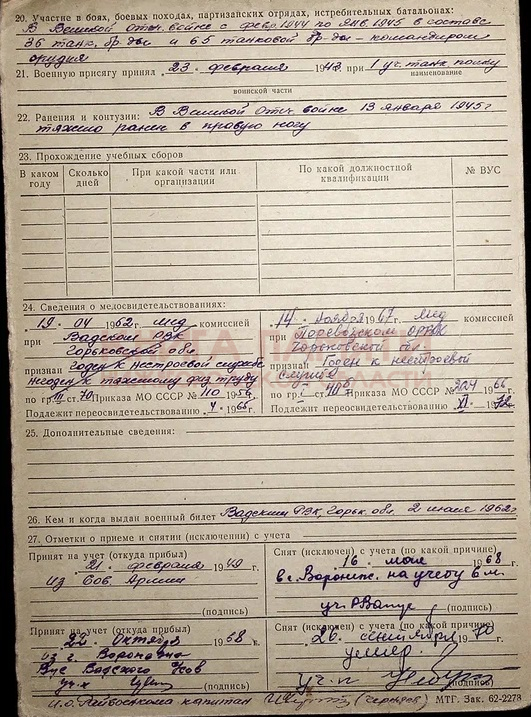 20. Участие в боях, боевых походах, партизанских отрядах, истребительных батальонах:
В Великой Отеч. войне с февр. 1944 по янв. 1945 в составе
36 танк. бр-ды и 65 танковой бр-ды – командиром
орудия
21. Военную присягу принял 23 февраля 1943 при 1 уч. танк. полку
наименование
воинской части
22. Ранения и контузии: В Великой Отеч. войне 13 января 1945 г
тяжело ранен в правую ногу
23. Прохождение учебных сборов
В каком году Сколько дней При какой части или организации По какой должностной квалификации № ВУС
24. Сведения о медосвидетельствованиях:
19. 04 1962 г. Мед комиссией
при Вадском РВК
Горьковской обл.
признан годен к нестроевой службе
негоден к тяжелому физ труду
по гр. III ст. 70 Приказа МО СССР № 110 195 г.
Подлежит переосвидетельствованию 4 1966 г.
14. ноября 1967 г. Мед комиссией
при Перевозском ОРВК
Горьковской обл.
признан Годен к нестроевой
службе
по гр. I ст. Приказа МО СССР № 1966 г.
Подлежит переосвидетельствованию XI 1972 г.
25. Дополнительные сведения:
26. Кем и когда выдан военный билет Вадским РВК, Горьк. обл. 2 июля 1962 г
27. Отметки о приеме и снятии (исключении) с учета
Принят на учет (откуда прибыл)
21. февраля 1949 г.
из Сов Армии
(подпись)
Снят (исключен) с учета (по какой причине)
16. мая 1968 г.
в г. Воронеж. на учебу 6 м.
(подпись)
Принят на учет (откуда прибыл)
22. Октября 1968 г.
из г. Воронежа
Вус Вадского
(подпись)
Снят (исключен) с учета (по какой причине)
26. сентября 1970
умер
(подпись)
И.о. Райвоенкома капитан (Черняев)
МТГ. Зак. 62-2278